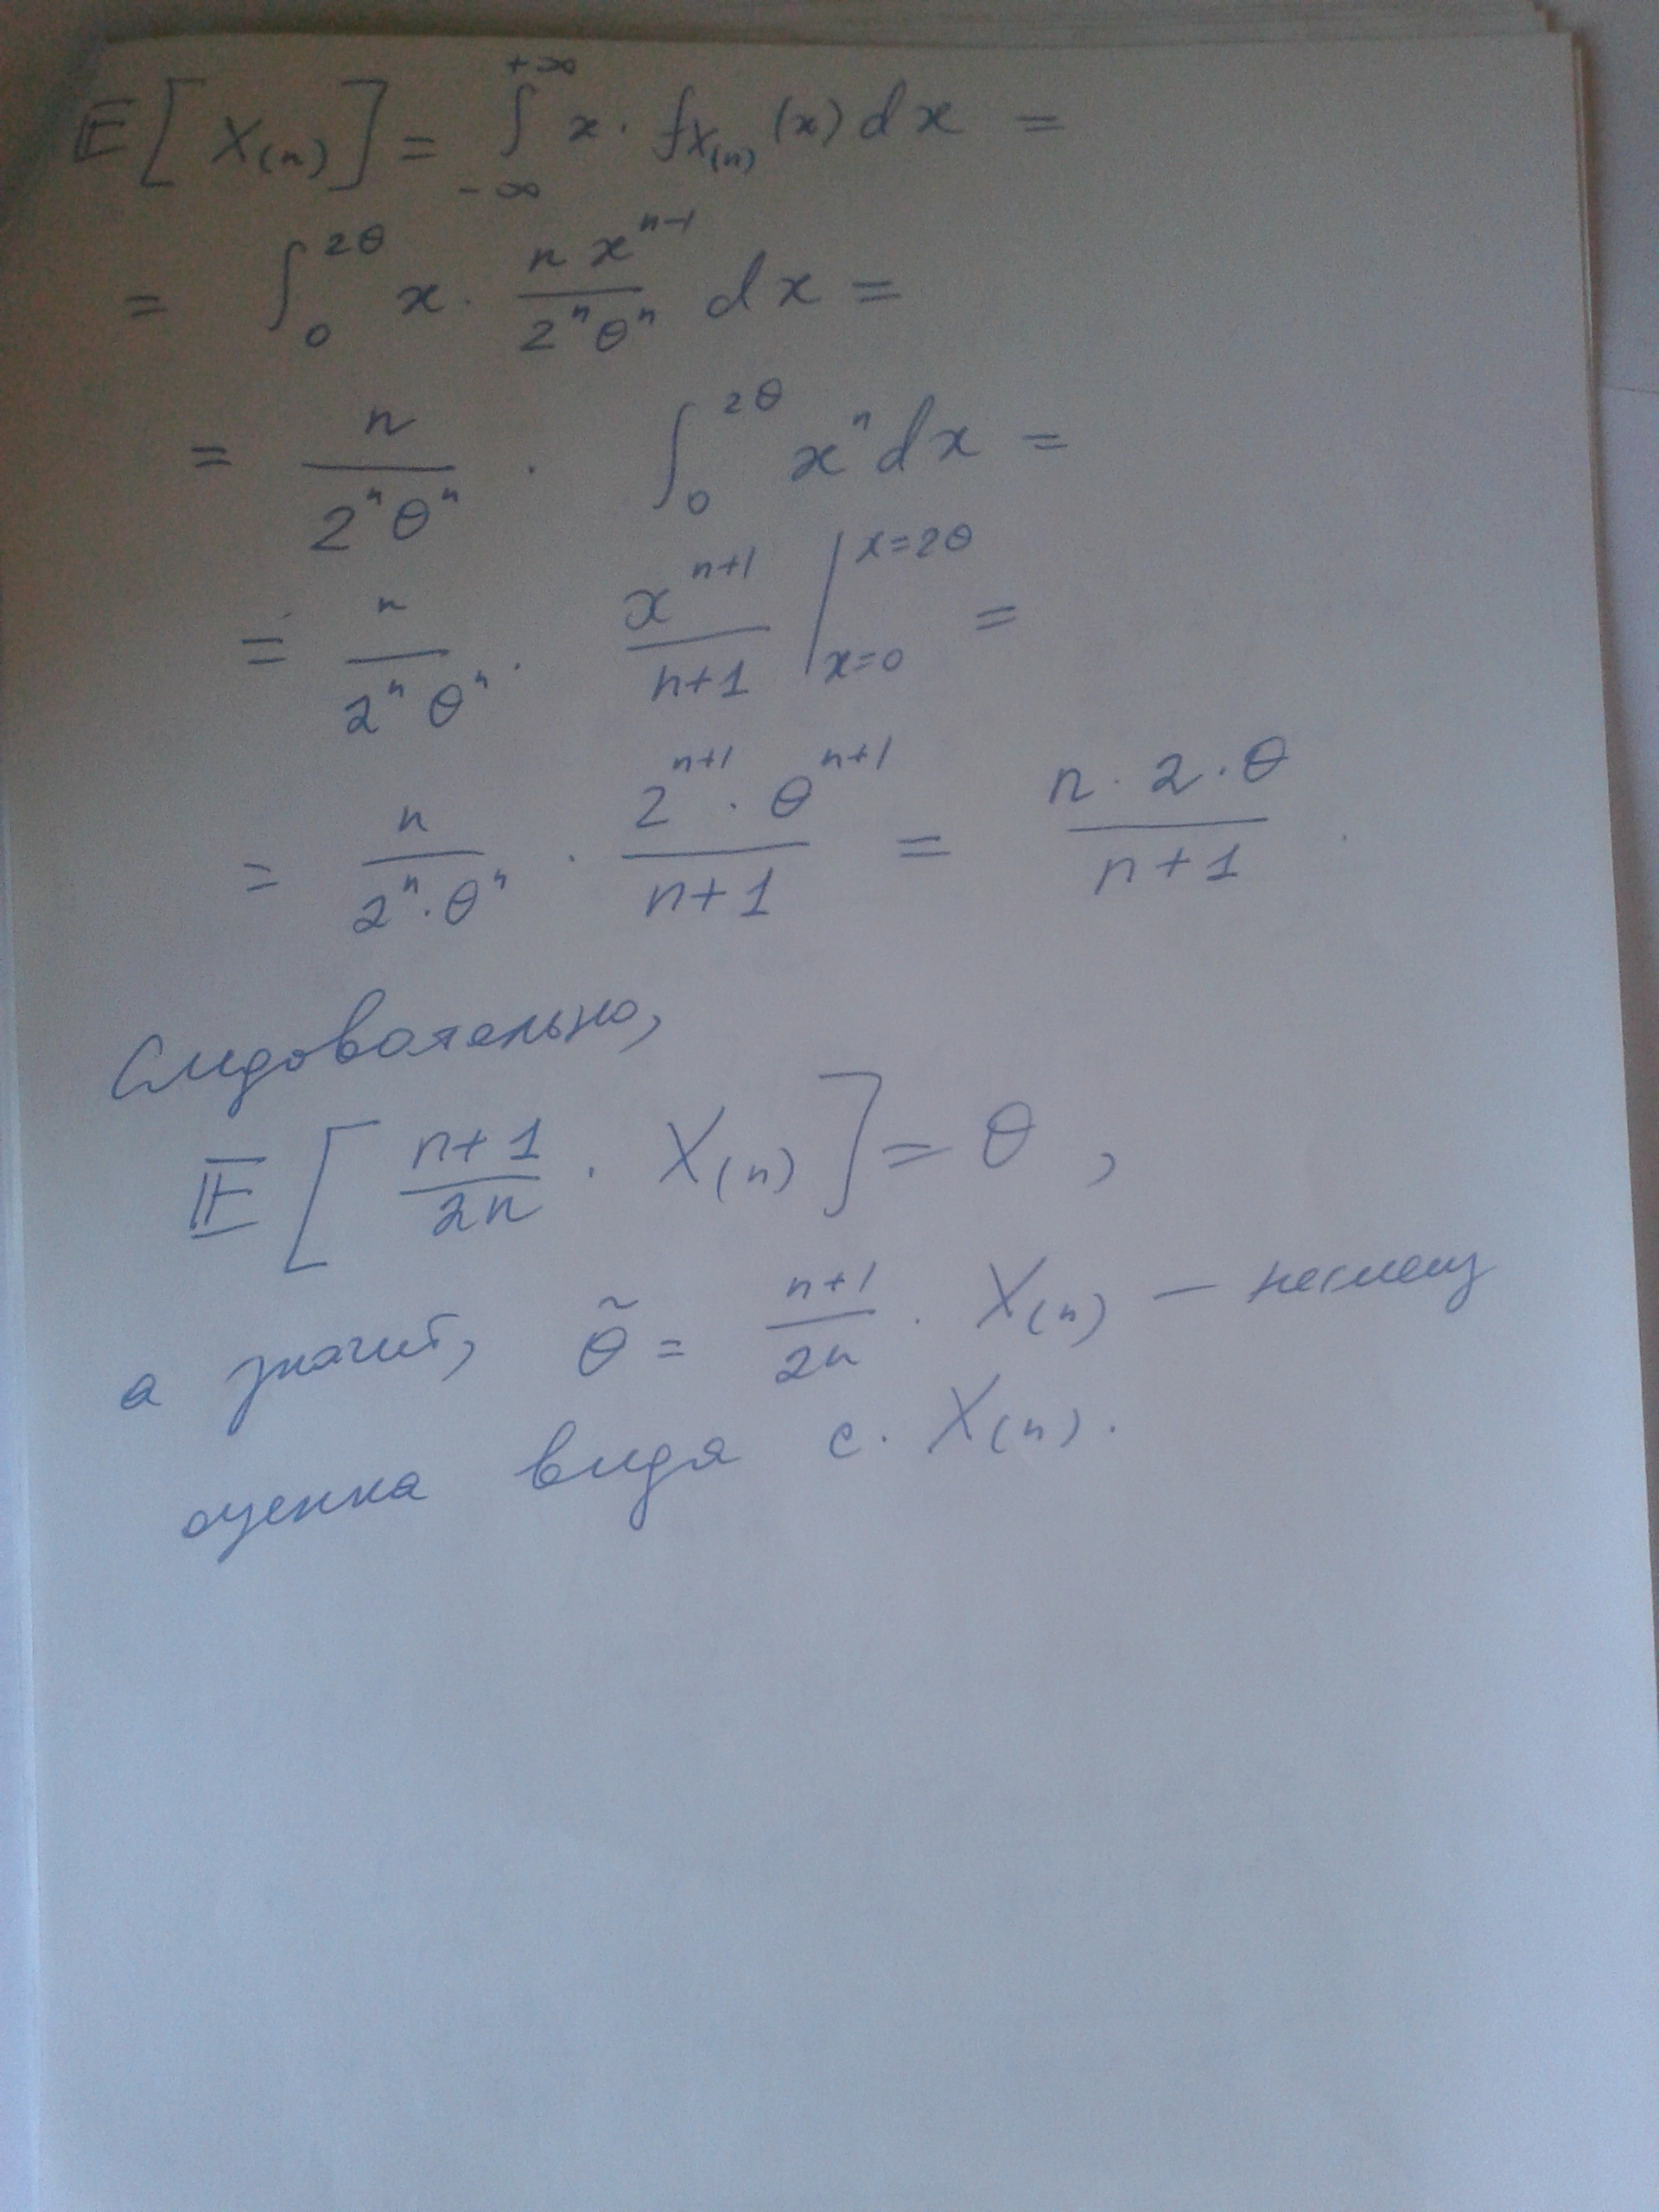 𝔼[X₍ₙ₎] = ∫_{-∞}^{+∞} x · f_{X₍ₙ₎}(x) dx =
= ∫_0^{2θ} x · \frac{n x^{n-1}}{2^n θ^n} dx =
= \frac{n}{2^n θ^n} · ∫_0^{2θ} x^n dx =
= \frac{n}{2^n θ^n} · \frac{x^{n+1}}{n+1} |_{x=0}^{x=2θ} =
= \frac{n}{2^n · θ^n} · \frac{2^{n+1} · θ^{n+1}}{n+1} = \frac{n · 2 · θ}{n+1}.
Следовательно,
𝔼[\frac{n+1}{2n} · X₍ₙ₎] = θ,
а значит, \tilde{θ} = \frac{n+1}{2n} · X₍ₙ₎ — несмещ
оценка вида c · X₍ₙ₎.